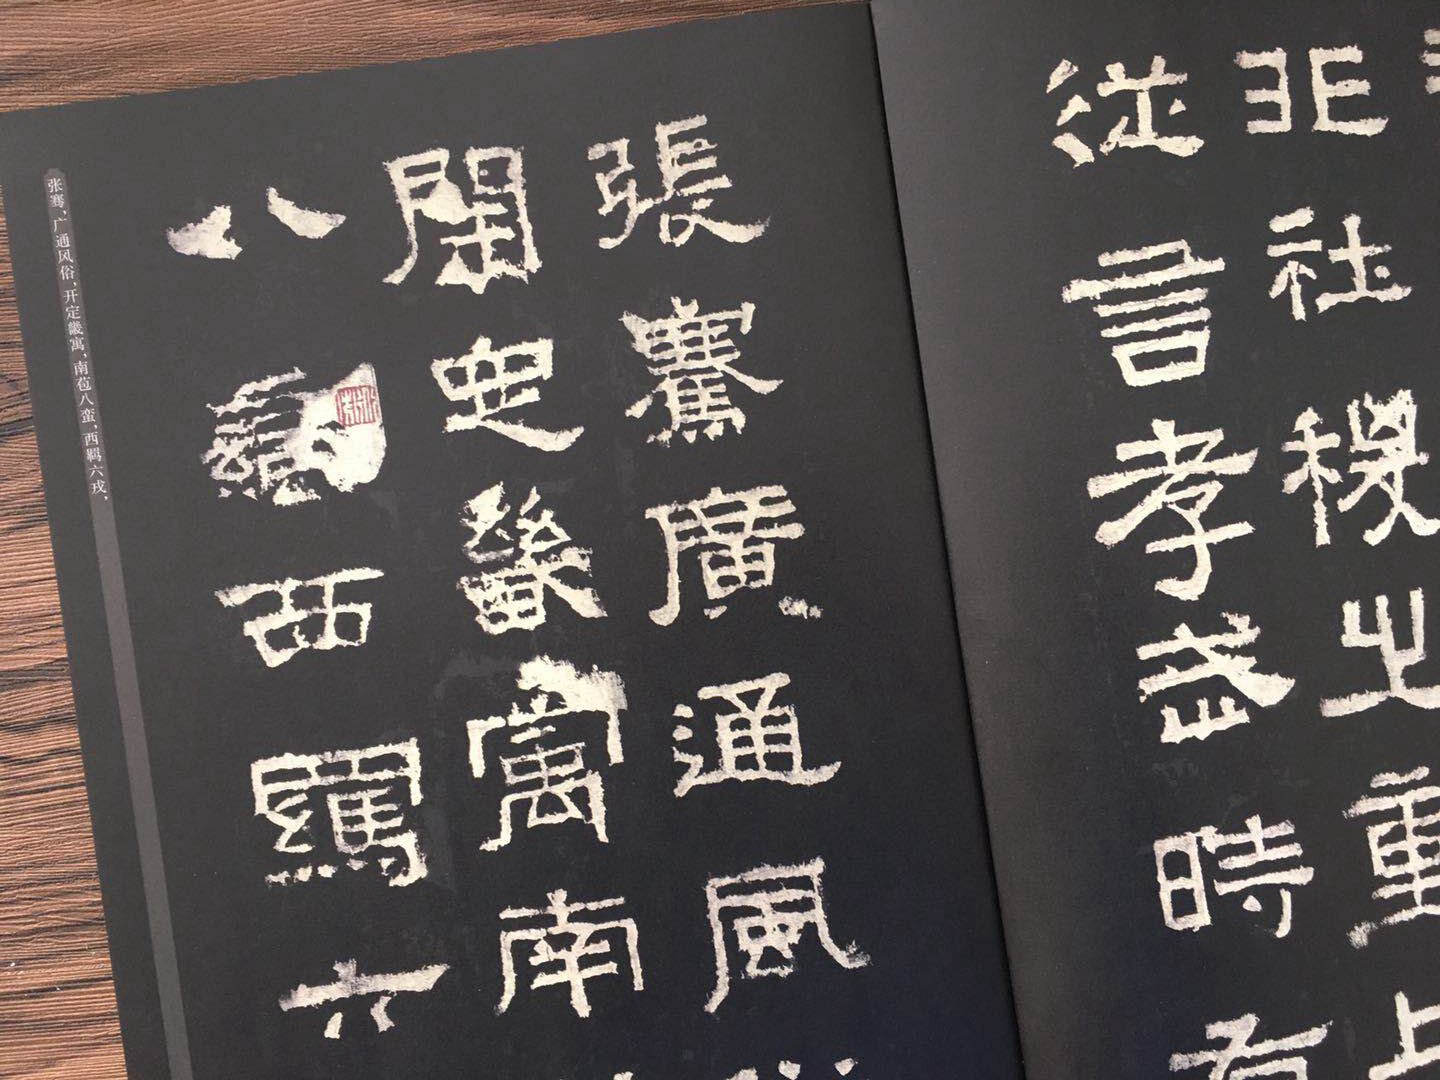 非社稷之重上
從言孝武時有
張騫廣通風
開定畿寓南
八蠻西羈六
张骞，广通风俗，开定畿寓，南苞八蛮，西羁六戎，